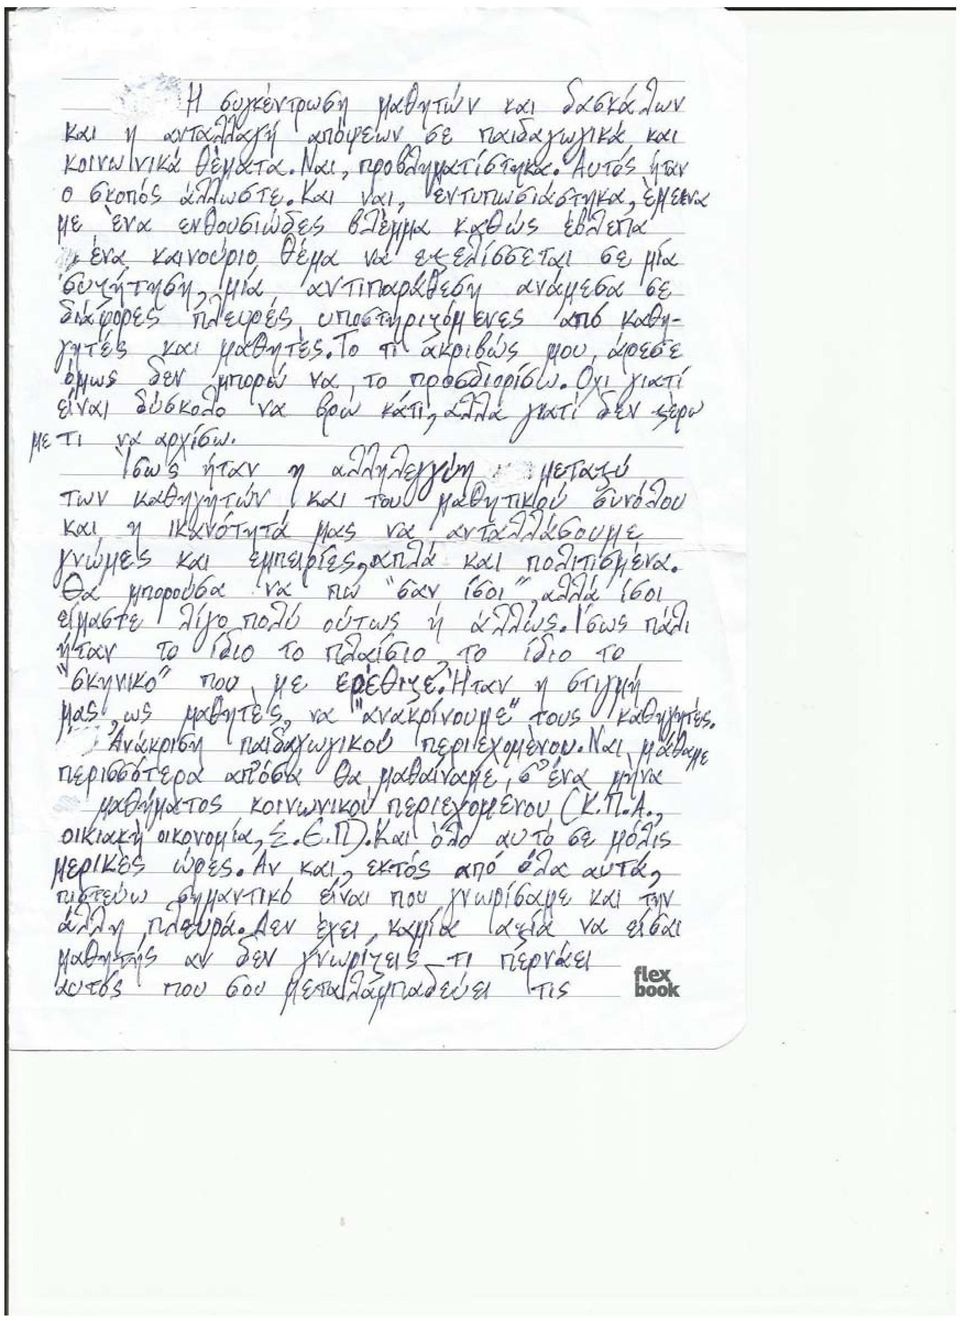 Η συγκέντρωση μαθητών και δασκάλων
και η ανταλλαγή απόψεων σε παιδαγωγικά και
κοινωνικά θέματα. Ναι, προβληματίστηκα. Αυτός ήταν
ο σκοπός άλλωστε. Και ναι, εντυπωσιάστηκα, έμεινα
με ένα ενθουσιώδες βλέμμα καθώς έβλεπα
ένα καινούριο θέμα να εξελίσσεται σε μία
συζήτηση, μία αντιπαράθεση ανάμεσα σε
διάφορες πλευρές, υποστηριζόμενες από καθη-
γητές και μαθητές. Το τι ακριβώς μου άρεσε
όμως δεν μπορώ να το προσδιορίσω. Όχι γιατί
είναι δύσκολο να βρω κάτι, αλλά γιατί δεν ξέρω
με τι να αρχίσω.
Ίσως ήταν η αλληλεγγύη μεταξύ
των καθηγητών και του μαθητικού συνόλου
και η ικανότητά μας να ανταλλάσουμε
γνώμες και εμπειρίες, απλά και πολιτισμένα.
Θα μπορούσα να πω "σαν ίσοι", αλλά ίσοι
είμαστε λίγο πολύ ούτως ή άλλως. Ίσως πάλι
ήταν το ίδιο το πλαίσιο, το ίδιο το
"σκηνικό" που με ερέθιζε. Ήταν η στιγμή
μας, ως μαθητές, να "ανακρίνουμε" τους καθηγητές.
Ανάκριση παιδαγωγικού περιεχομένου. Ναι, μάθαμε
περισσότερα απ'όσα θα μαθαίναμε σ' ένα μήνα
μαθήματος κοινωνικού περιεχομένου (Κ.Π.Α.,
οικιακή οικονομία, Σ.Ε.Π). Και όλο αυτό σε μόλις
μερικές ώρες. Αν και, εκτός από όλα αυτά,
πιστεύω σημαντικό είναι που γνωρίσαμε και την
άλλη πλευρά. Δεν έχει καμία αξία να είσαι
μαθητής αν δεν γνωρίζεις τι περνάει
αυτός που σου μεταλαμπαδεύει τις
flex
book